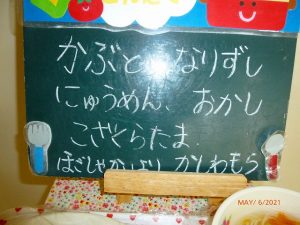 かぶといなりずし
にゅうめん、おかし
こざくらたま
かしわもち
MAY/ 6/2021